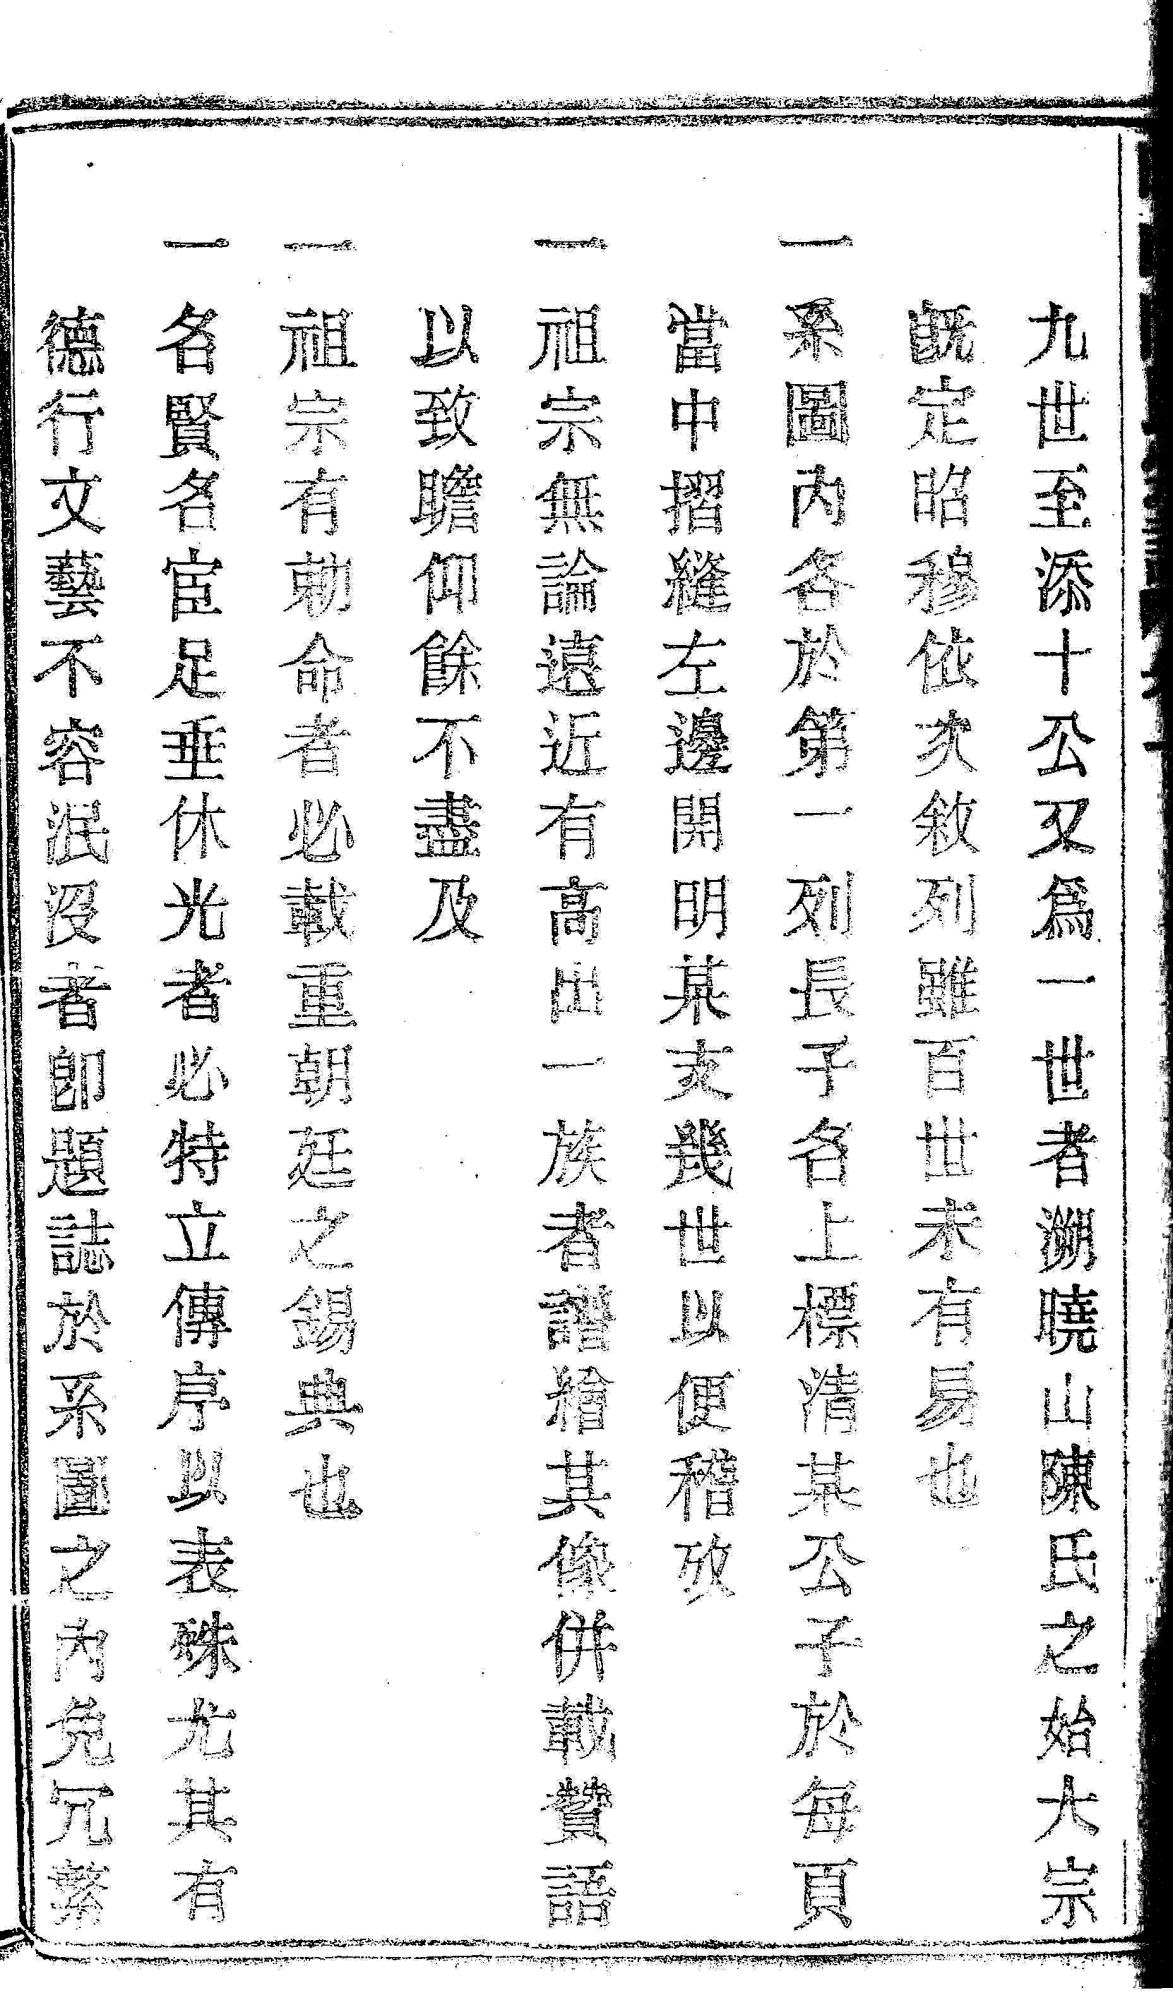 九世至添十公又爲一世者溯曉山陳氏之始大宗
旣定昭穆依次敘列雖百世未有易也
一系圖內各於第一列長子名上標清某公子於每頁
當中摺縫左邊開明某支幾世以便稽攷
一祖宗無論遠近有高出一族者譜繪其像併載贊語
以致瞻仰餘不盡及
一祖宗有勅命者必載重朝廷之錫典也
一名賢名宦足垂休光者必特立傳序以表殊尤其有
德行文藝不容泯沒者卽題誌於系圖之內免冗繁